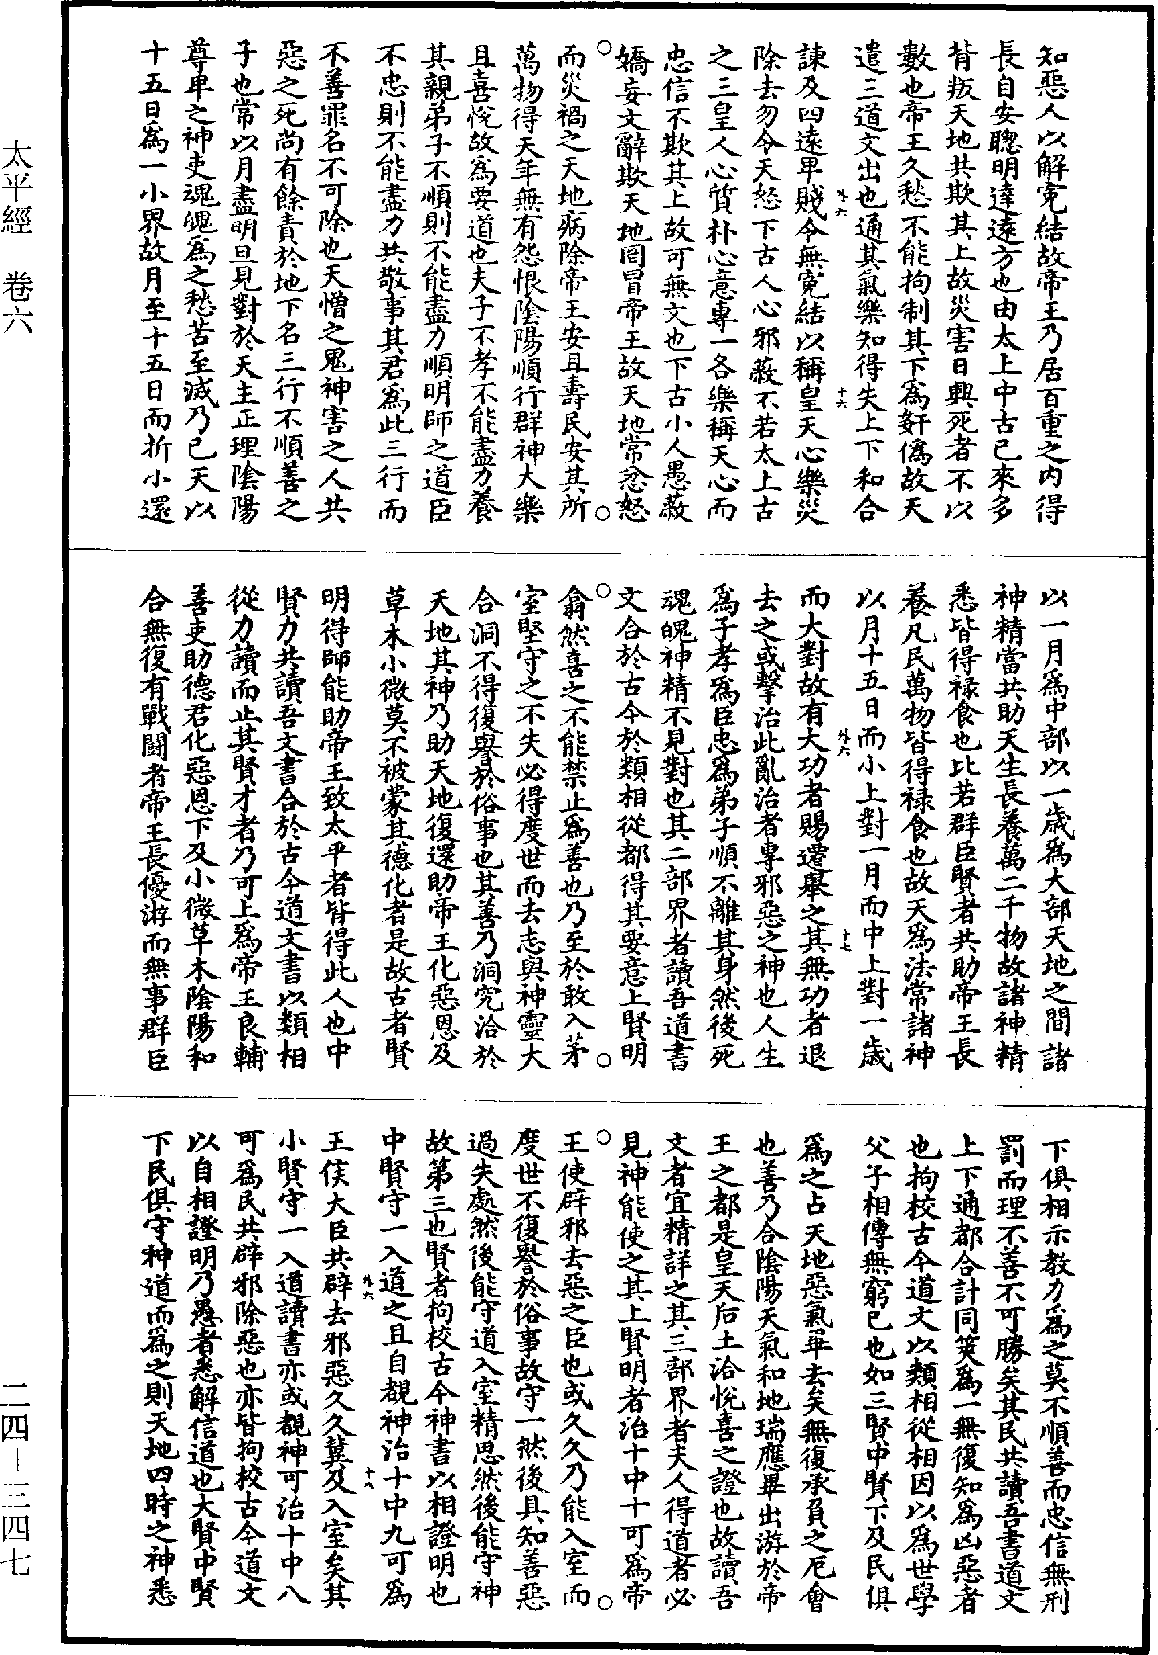 知惡人以解寃結故帝王乃居百重之內得
長自安聰明達遠方也由太上中古已來多
背叛天地共欺其上故災害日興死者不以
數也帝王久愁不能拘制其下爲姧僞故天
遣三道文出也通其氣樂知得失上下和合
諫及四遠卑賤令無寃結以稱皇天心樂災
除去勿令天怒下古人心邪蔽不若太上古
之三皇人心質朴心意專一各樂稱天心而
忠信不欺其上故可無文也下古小人愚蔽
嬌妄文辭欺天地罔冒帝王故天地常忿怒
而災禍之天地病除帝王安且壽民安其所
萬物得天年無有怨恨陰陽順行群神大樂
且喜悅故爲要道也夫子不孝不能盡力養
其親弟子不順則不能盡力順明師之道臣
不忠則不能盡力共敬事其君爲此三行而
不善罪名不可除也天憎之鬼神害之人共
惡之死尚有餘責於地下名三行不順善之
子也常以月盡明旦見對於天主正理陰陽
尊卑之神吏魂魄爲之愁苦至滅乃已天以
十五日爲一小界故月至十五日而折小還
外六
十六
以一月爲中部以一歲爲大部天地之間諸
神精當共助天生長養萬二千物故諸神精
悉皆得祿食也比若群臣賢者共助帝王長
養凡民萬物皆得祿食也故天爲法常諸神
以月十五日而小上對一月而中上對一歲
而大對故有大功者賜遷舉之其無功者退
去之或擊治此亂治者專邪惡之神也人生
爲子孝爲臣忠爲弟子順不離其身然後死
魂魄神精不見對也其二部界者讀吾道書
文合於古今於類相從都得其要意上賢明
翕然喜之不能禁止爲善也乃至於敢入茅
室堅守之不失必得度世而去志與神靈大
合洞不得復譽於俗事也其善乃洞究洽於
天地其神乃助天地復還助帝王化惡恩及
草木小微莫不被蒙其德化者是故古者賢
明得師能助帝王致太平者皆得此人也中
賢力共讀吾文書合於古今道文書以類相
從力讀而止其賢才者乃可上爲帝王良輔
善吏助德君化惡恩下及小微草木陰陽和
合無復有戰鬪者帝王長優游而無事群臣
外六
十七
下俱相示教力爲之莫不順善而忠信無刑
罰而理不善不可勝矣其民共讀吾書道文
上下通都合計同筴爲一無復知爲凶惡者
也拘校古今道文以類相從相因以爲世學
父子相傳無窮已也如三賢中賢下及民俱
爲之占天地惡氣畢去矣無復承負之厄會
也善乃合陰陽天氣和地瑞應畢出游於帝
王之都是皇天后土洽悅喜之證也故讀吾
文者宜精詳之其三部界者夫人得道者必
見神能使之其上賢明者治十中十可爲帝
王使辟邪去惡之臣也或久久乃能入室而
度世不復譽於俗事故守一然後具知善惡
過失處然後能守道入室精思然後能守神
故第三也賢者拘校古今神書以相證明也
中賢守一入道之且自覩神治十中九可爲
王侯大臣共辟去邪惡久久冀及入室矣其
小賢守一入道讀書亦或覩神可治十中八
可爲民共辟邪除惡也亦皆拘校古今道文
以自相證明乃愚者悉解信道也大賢中賢
下民俱守神道而爲之則天地四時之神悉
外六
十八
太平經　卷六
二四—三四七